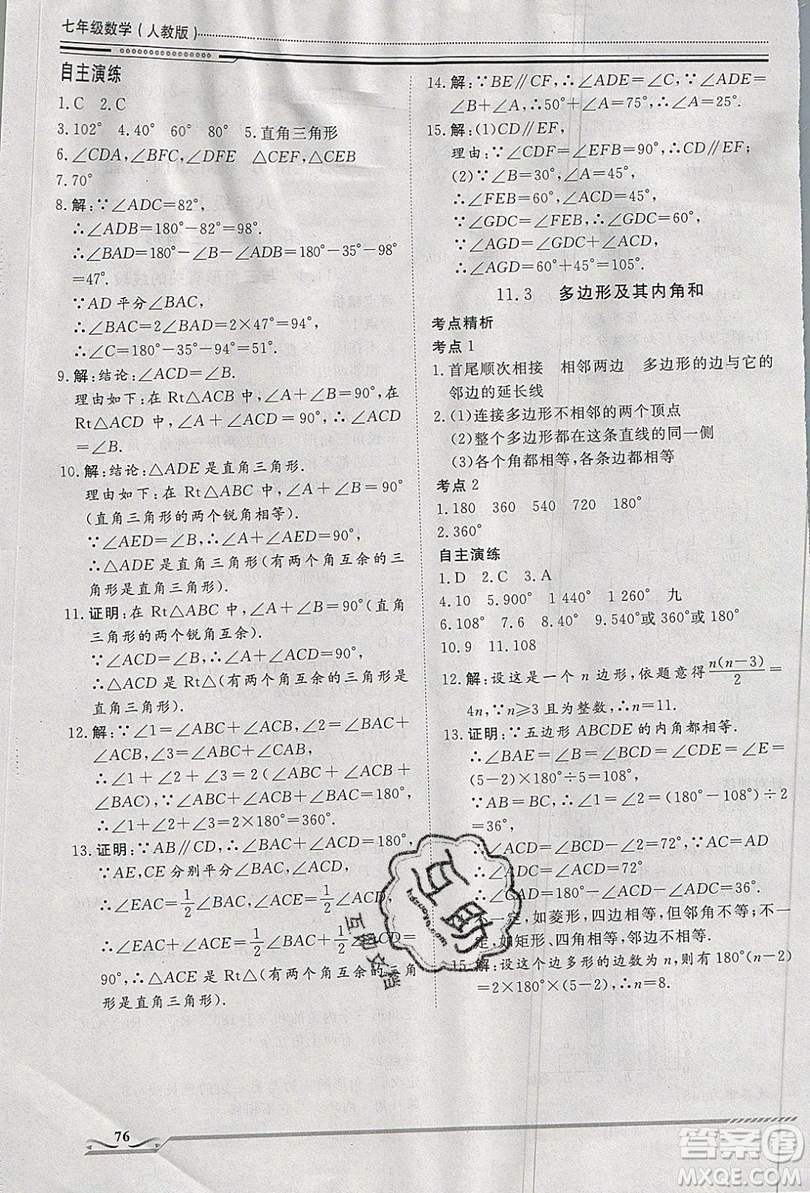 七年级数学（人教版）
自主演练
1.C 2.C
3.102° 4.40° 60° 80° 5.直角三角形
6.∠CDA,∠BFC,∠DFE △CEF,△CEB
7.70°
8.解:∵∠ADC=82°,
∴∠ADB=180°-82°=98°.
∴∠BAD=180°-∠B-∠ADB=180°-35°-98°
=47°.
∵AD平分∠BAC,
∴∠BAC=2∠BAD=2×47°=94°.
∴∠C=180°-35°-94°=51°.
9.解:结论:∠ACD=∠B.
理由如下:在Rt△ABC中,∠A+∠B=90°,在
Rt△ACD中,∠A+∠ACD=90°,∴∠ACD
=∠B.
10.解:结论:△ADE是直角三角形.
理由如下:在Rt△ABC中,∠A+∠B=90°
(直角三角形的两个锐角相等).
∵∠AED=∠B,∴∠A+∠AED=90°.
∴△ADE是直角三角形(有两个角互余的三
角形是直角三角形).
11.证明:在Rt△ABC中,∠A+∠B=90°(直角
三角形的两个锐角互余).
∵∠ACD=∠B,∴∠A+∠ACD=90°.
∴△ACD是Rt△(有两个角互余的三角形是
直角三角形).
12.解:∵∠1=∠ABC+∠ACB,∠2=∠BAC+
∠ACB,∠3=∠ABC+∠CAB,
∴∠1+∠2+∠3=2(∠BAC+∠ACB+
∠ABC),∵∠BAC+∠ACB+∠ABC=180°,
∴∠1+∠2+∠3=2×180°=360°.
13.证明:∵AB∥CD,∴∠BAC+∠ACD=180°,
∵AE,CE分别平分∠BAC,∠ACD,
∴∠EAC=1/2∠BAC,∠ACE=1/2∠ACD,
∴∠EAC+∠ACE=1/2(∠BAC+∠ACD)=
90°,∴△ACE是Rt△(有两个角互余的三角
形是直角三角形).
14.解:∵BE∥CF,∴∠ADE=∠C,∵∠ADE=
∠B+∠A,∴50°+∠A=75°,∴∠A=25°.
15.解:(1)CD∥EF,
理由:∵∠CDF=∠EFB=90°,∴CD∥EF;
(2)∵∠B=30°,∠A=45°,
∴∠FEB=60°,∠ACD=45°,
∴∠GDC=∠FEB=60°,
∴∠AGD=∠AGD+∠ACD,
∴∠AGD=60°+45°=105°.
11.3 多边形及其内角和
考点精析
考点1
1.首尾顺次相接 相邻两边 多边形的边与它的
邻边的延长线
2.(1)连接多边形不相邻的两个顶点
(2)整个多边形都在这条直线的同一侧
(3)各个角都相等,各条边都相等
考点2
1.180 360 540 720 180°
2.360°
自主演练
1.D 2.C 3.A
4.10 5.900° 1 260° 1 260° 九
6.108° 7.6 8.240° 9.540°或360°或180°
10.9 11.108
12.解:设这是一个n边形,依题意得n(n-3)/2=
4n,∵n≥3且为整数,∴n=11.
13.证明:∵五边形ABCDE的内角都相等,
∴∠BAE=∠B=∠BCD=∠CDE=∠E=
(5-2)×180°÷5=108°,
∵AB=BC,∴∠ACB=(180°-108°)÷2
=36°,
∴∠ACD=∠BCD-∠ACB=72°,∵AC=AD
∴∠ADC=∠ACD=72°
∴∠CAD=180°-∠ACD-∠ADC=36°.
不一定,如菱形,四边相等,但邻角不相等;不
一定,如矩形、四角相等、邻边不相等.
15.解:设这个边多形的边数为n,则180°(n-2)
=2×180°(5-2),∴n=8.
76
互助
互助文档
答案圈
MXQE.COM